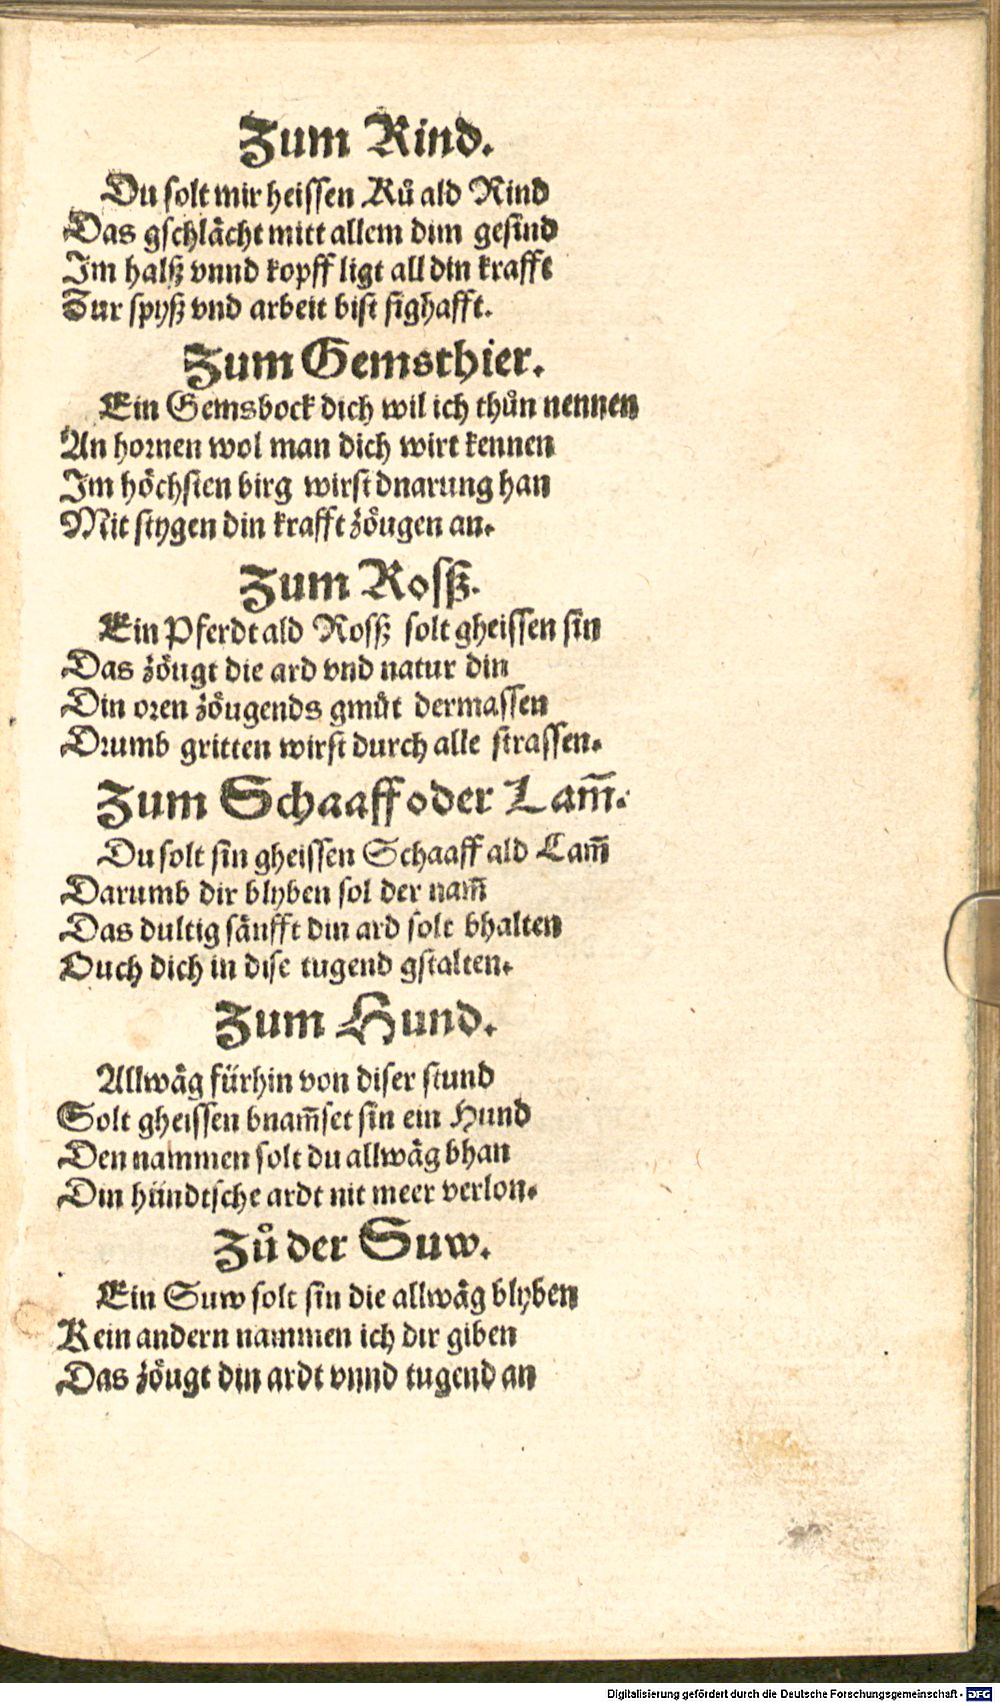 Zum Rind.
Du solt mir heissen Ků ald Rind
Das gschlächt mitt allem dim gesind
Im halß vnnd kopff ligt all din krafft
Zur spyß vnd arbeit bist sighafft.
Zum Gemsthier.
Ein Gemsbock dich wil ich thůn nennen
An hornen wol man dich wirt kennen
Im höchsten birg wirst dnarung han
Mit stygen din krafft zöugen an.
Zum Rosß.
Ein Pferdt ald Rosß solt gheissen sin
Das zöugt die ard vnd natur din
Din oren zöugends gmůt dermassen
Drumb gritten wirst durch alle strassen.
Zum Schaaff oder Lam̄.
Du solt sin gheissen Schaaff ald Lam̄
Darumb dir blyben sol der nam̄
Das dultig sänfft din ard solt bhalten
Ouch dich in dise tugend gstalten.
Zum Hund.
Allwäg fürhin von diser stund
Solt gheissen bnam̄set sin ein Hund
Den nammen solt du allwäg bhan
Din hündische ardt nit meer verlon.
Zů der Suw.
Ein Suw solt sin die allwäg blyben
Kein andern nammen ich dir giben
Das zöugt din ardt vnnd tugend an
Digitalisierung gefördert durch die Deutsche Forschungsgemeinschaft - DFG